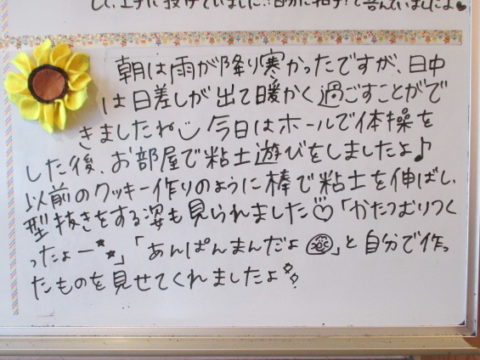 て、上手に投げていました!!自分に拍手!と喜んでいましたよ♥
朝は雨が降り寒かったですが、日中
は日差しが出て暖かく過ごすことがで
きましたね 今日はホールで体操を
した後、お部屋で粘土遊びをしましたよ♪
以前のクッキー作りのように棒で粘土を伸ばし、
型抜きをする姿も見られました♡「かたつむりつく
ったよー」「あんぱんまんだよ」と自分で作っ
たものを見せてくれましたよ